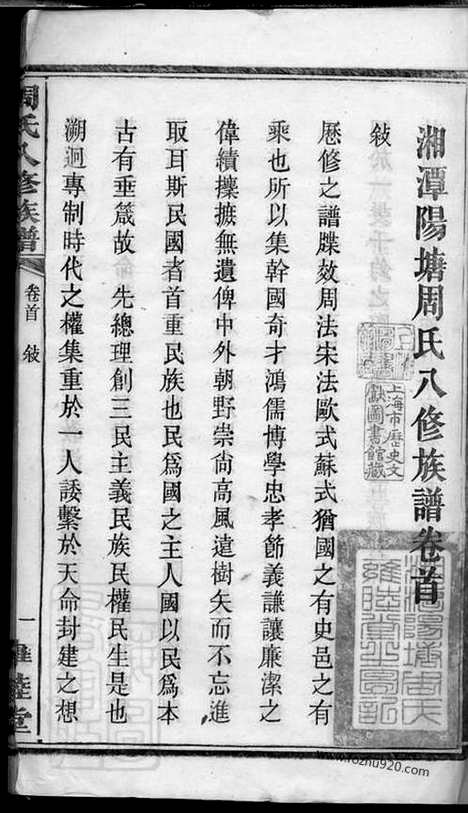 湘潭陽塘周氏八修族譜卷首
敍
歷修之譜牒效周法宋法歐式蘇式猶國之有史邑之有
乘也所以集幹國奇才鴻儒博學忠孝節義謙讓廉潔之
偉績攗摭無遺俾中外朝野崇尚高風遠樹矢而不忘進
取耳斯民國者首重民族也民爲國之主人國以民爲本
古有垂箴故 先總理創三民主義民族民權民生是也
溯迴專制時代之權集重於一人諉繫於天命封建之想
周氏八修族譜
卷首 敍
一
雍睦堂
上海市歷史文
獻圖書館藏
www.fozhu920.com